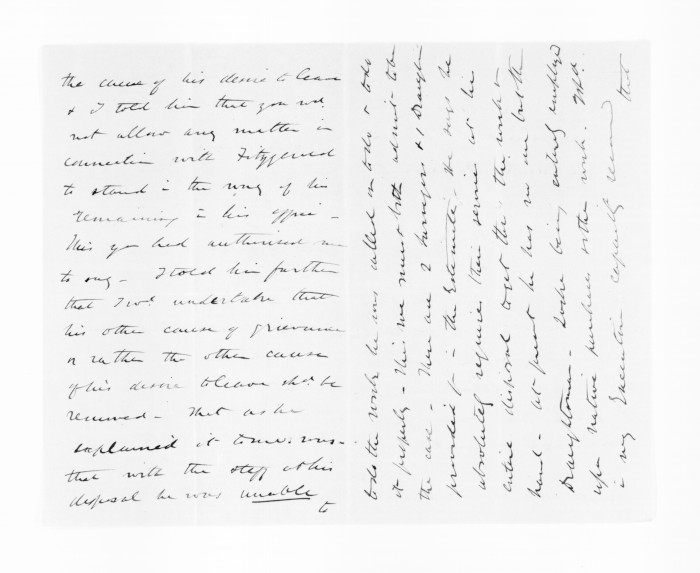 the cause of his desire to leave
& I told him that you wd.
not allow any matter in
connection with Fitzgerald
to stand in the way of his
remaining in his office -
This you had authorised me
to say - I told him further
that I wd. undertake that
his other cause of grievance
or rather the other cause
of his desire to leave shd. be
removed - that as he
explained it to me was -
that with the staff at his
disposal he was unable to
to do the work he was called on to do & to do
it properly - This we must both admit to be
the case - There are 2 Surveyors & 1 Draughtsman
provided for in the Estimates - He says he
absolutely requires their services at his
entire disposal to get thro' the work in
hand - at present he has no one but the
Draughtsman - being entirely employed
upon native purchases & other work.
in my Execution capacity that